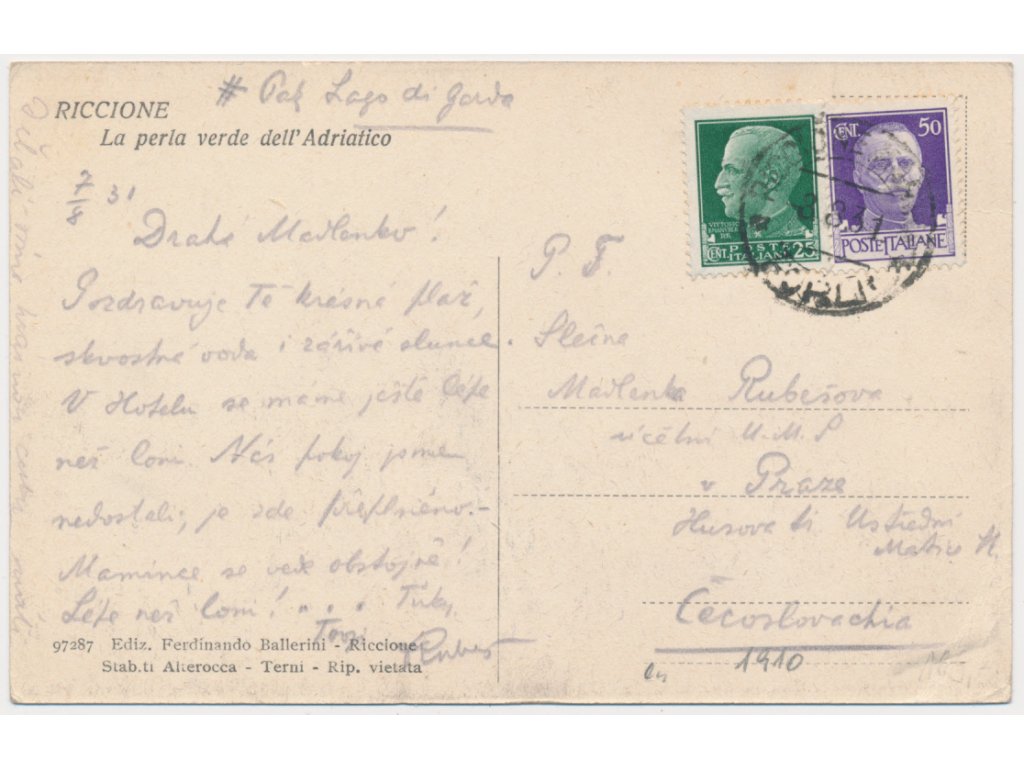 # Pal Lago di Garda
RICCIONE
La perla verde dell'Adriatico
7/8 31
Drahá Mádlenko!
Pozdravuje Tě krásná pláž,
skvostná voda i zářivé slunce.
V Hotelu se máme ještě lépe
než loni. Náš pokoj jsme
nedostali, je zde přeplněno.-
Mamince se vede obstojně!
Lépe než loni! . . .
Rubeš
97287 Ediz. Ferdinando Ballerini - Riccione
Stab.ti Alterocca - Terni - Rip. vietata
VITTORIO
EMANUELE
CENT. POSTE ITALIANE 25
CENT. 50
POSTE ITALIANE
8.8.31
P. T.
Slečna
Mádlenka Rubešova
účetní U.M.S
v Praze
Husova tř Ustřední
Čecoslovachia
1910